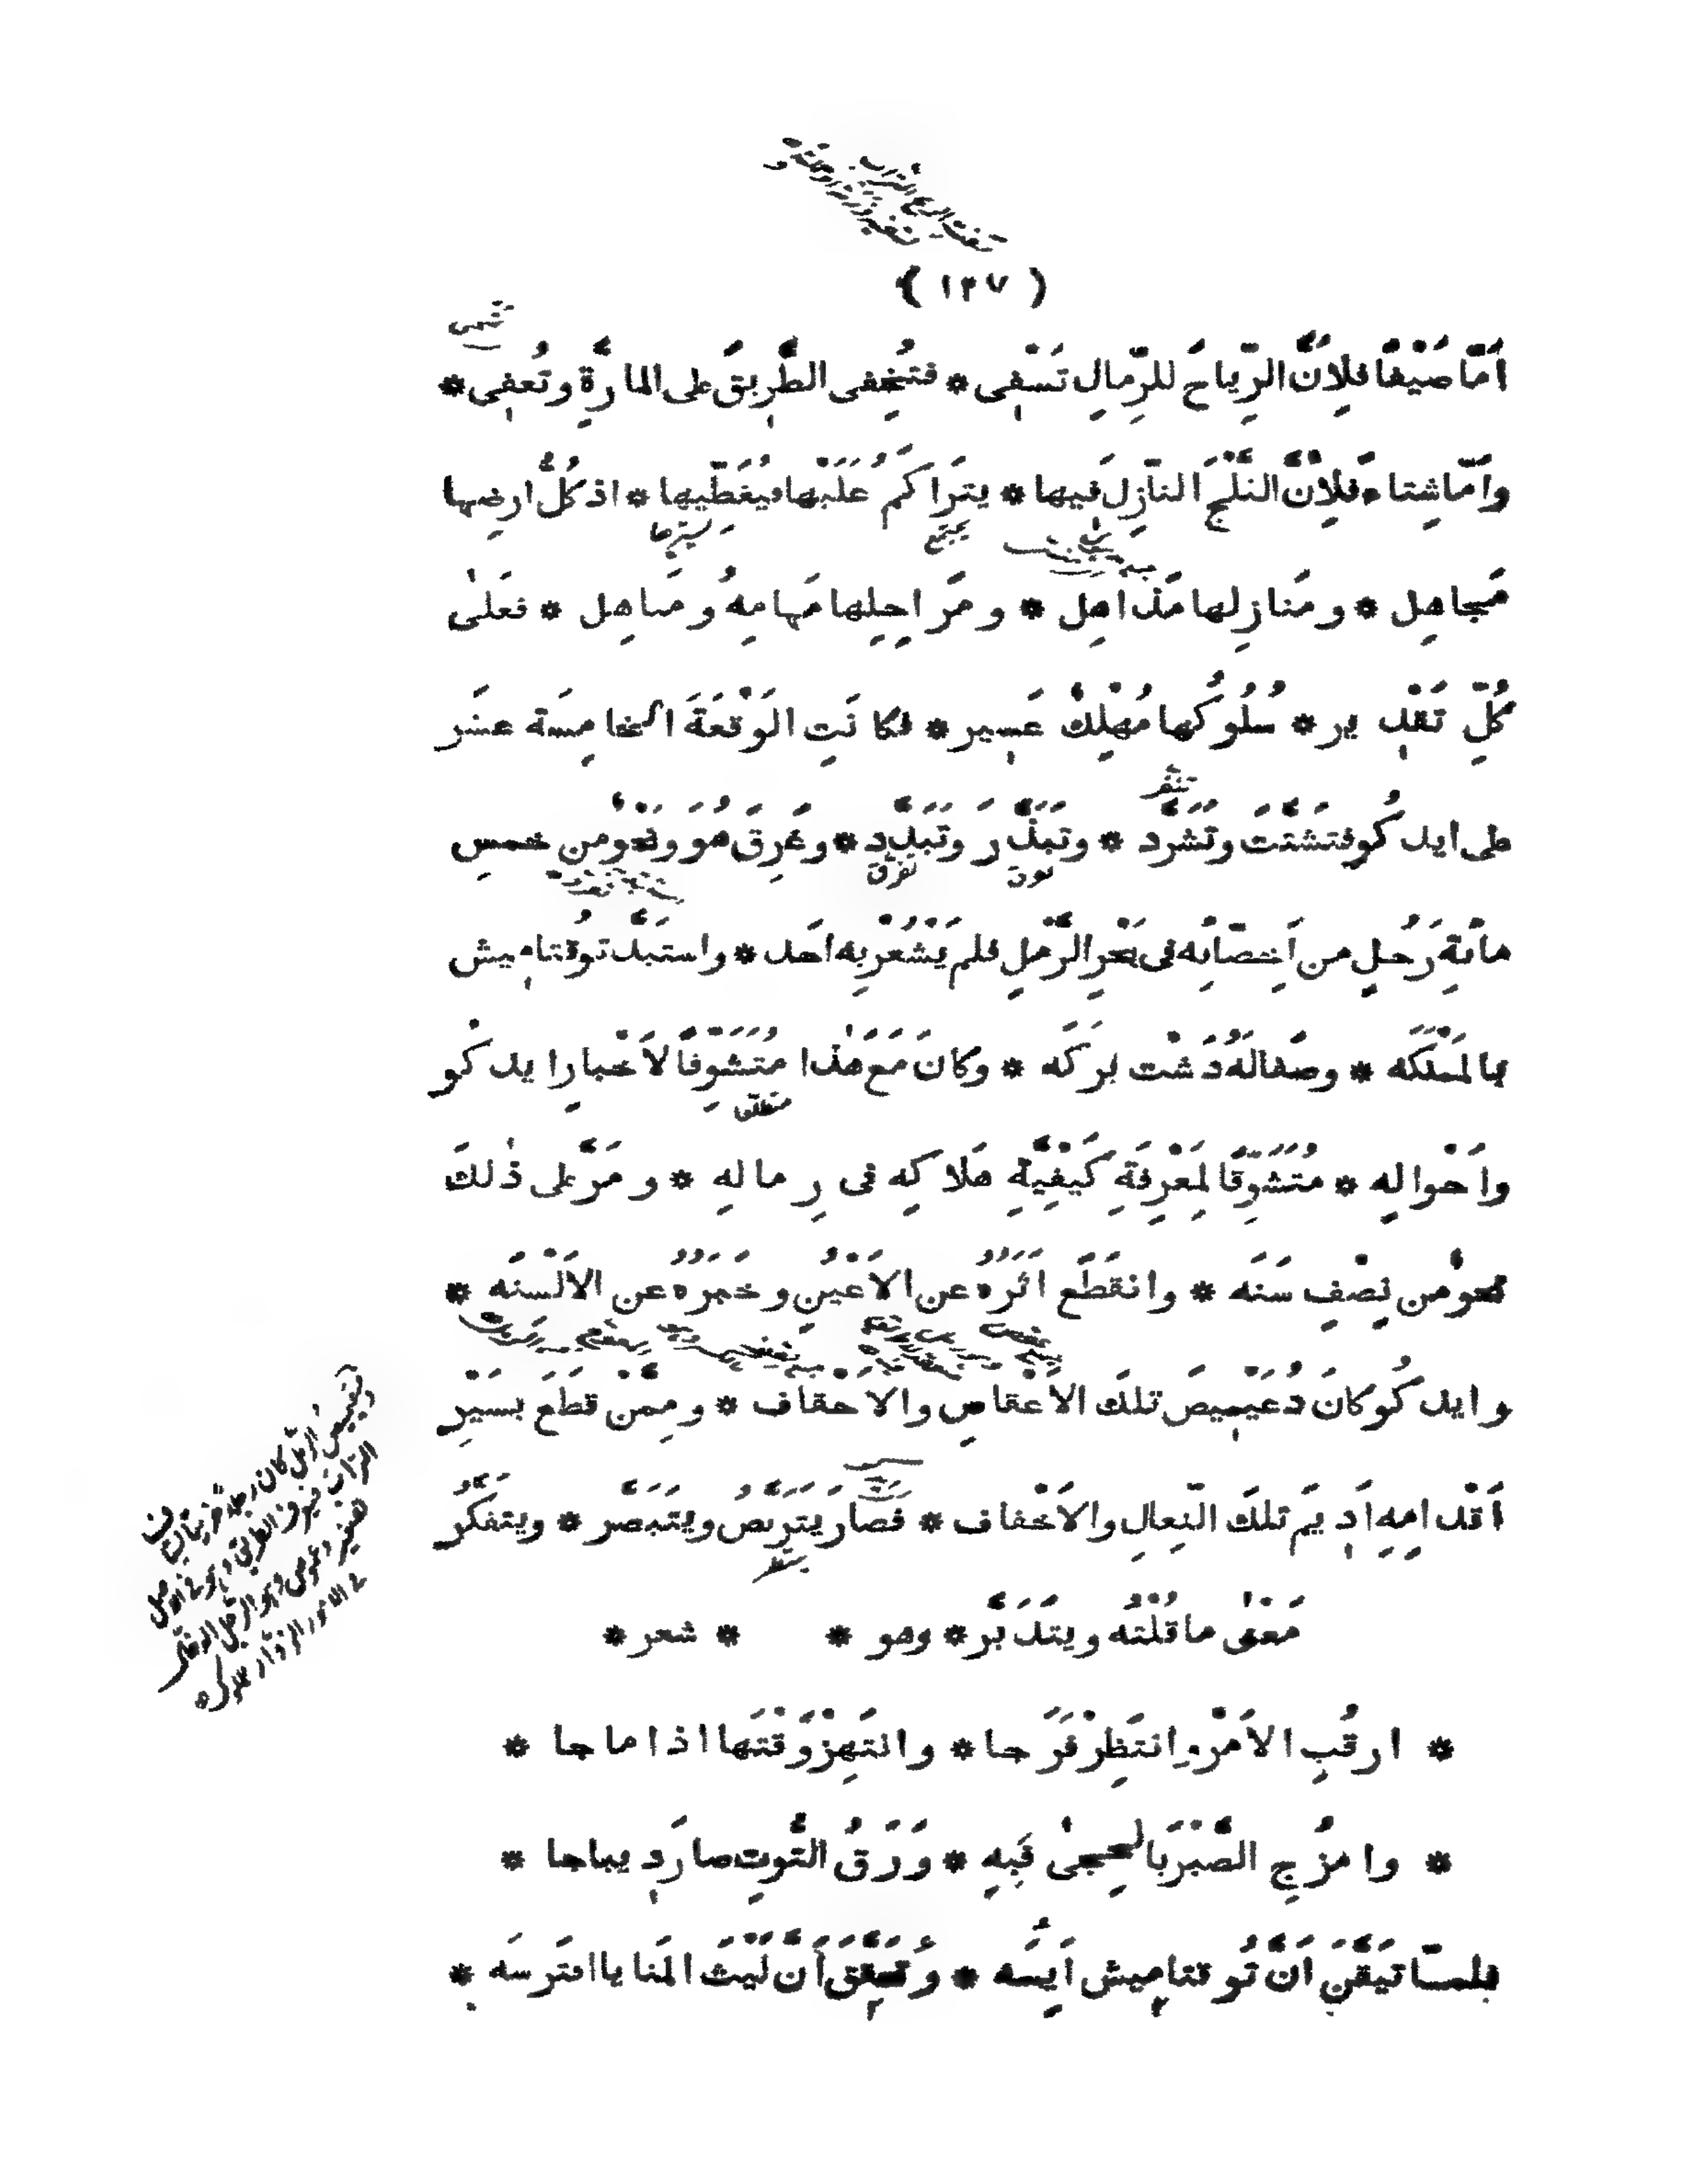 ( ١٢٧ )
أَمَّا صَيْفًا فَلِأَنَّ الرِّيَاحَ لِلرِّمَالِ تَسْفِي * فَتُخْفِى الطَّرِيقَ عَلى المارَّةِ وتُعفِى *
وأَمَّا شِتاءً فَلِأَنَّ الثَّلْجَ النَّازِلَ فيها * يتَرَاكَمُ عَلَيْها فيُغَطِّيها * اذ كُلُّ ارضِها
مَجاهِل * ومَنازِلها مَذاهِل * ومَرَاحِلِها مَهامِهُ ومَناهِل * فعَلىٰ
كُلِّ تَقْدِير * سُلُوكُها مُهْلِكٌ عَسِير * فكانَتِ الوَقْعَةَ الخامِسَة عشَر
على ايدكُو فتَشَتَّتَ وتَشَرَّد * وتَبَذَّرَ وتَبَدَّد * وغَرِقَ هُوَ ونَحْوٌ من خمسِ
مائةِ رَجُلٍ من أَخِصَّائِه فى بَحْرِ الرَّمْلِ فلم يَشْعُرْ بِه أحَد * واستبَدَّ توُقتامِيش
بالمَمْلَكَه * وصَفا لَهُ دَشْت بَركَه * وكانَ مَعَ هٰذا مُتَشَوِّفًا لأَخْبارِ ايدكُو
وأَحْوالِه * مُتَشَوِّقًا لِمَعْرِفَةِ كَيْفِيَّةِ هَلاكِه فى رِمالِه * ومَرَّ على ذٰلكَ
نحوٌ من نِصْفِ سَنَه * وانقَطَعَ أَثَرُهُ عن الأَعْيُنِ وخَبَرُهُ عن الأَلْسِنَه *
وايدكُو كانَ دُعَيْمِيصَ تلكَ الأَعْقاصِ والأَحْقاف * ومِمَّنْ قطَعَ بسَيْرِ
أَقْدامِهِ أَدِيمَ تلكَ النِّعالِ والأَخْفاف * فصَارَ يَتَرَبَّصُ ويتَبَصَّر * ويتفكَّرُ
مَعْنٰى ما قُلْتُه ويتَدَبَّر * وهو * * شعر *
* ارقُبِ الأَمْرَ وانتَظِرْ فَرَجا * وانتَهِزْ وَقْتَها اذا ما جا *
* وامزُجِ الصَّبْرَ بالحِجىٰ فَبِهِ * وَرَقُ التُّوتِ صارَ دِيباجا *
فلمَّا تيَقَّنَ أَنَّ تُوقتامِيش أَيِسَه * وتحَقَّقَ أَنَّ لَيْثَ المَنايا افتَرسَه *